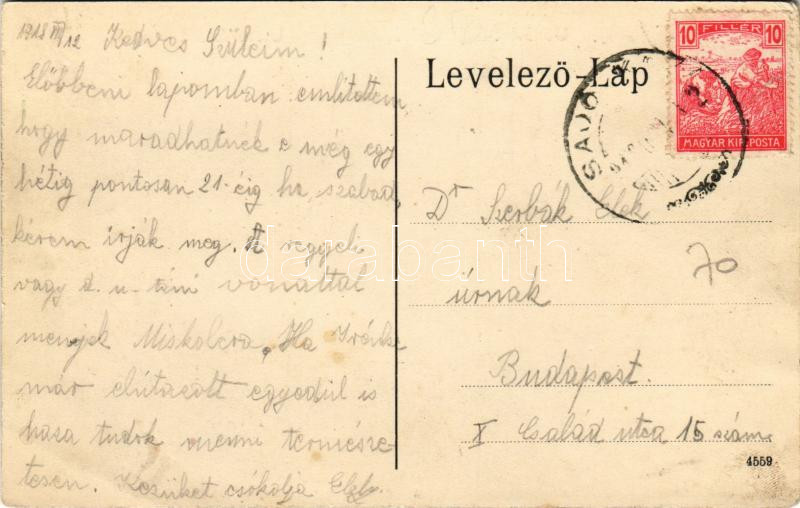 1918 III/12 Kedves Szüleim!
Előbbeni lapomban említettem
hogy maradhatnék e még egy
hétig pontosan 21-éig ha szabad,
kérem írják meg. A reggeli
vagy d. u-táni vonattal
menjek Miskolcra. Ha Irénke
már elútazott egyedül is
haza tudok menni természe-
tesen. Kezüket csókolja Elek.
Levelező-Lap
FILLÉR
10 10
MAGYAR KIR. POSTA
SAJÓ
Dr Szerbák Elek
úrnak
70
Budapest.
X Család utca 15 szám.
4559
darabanth